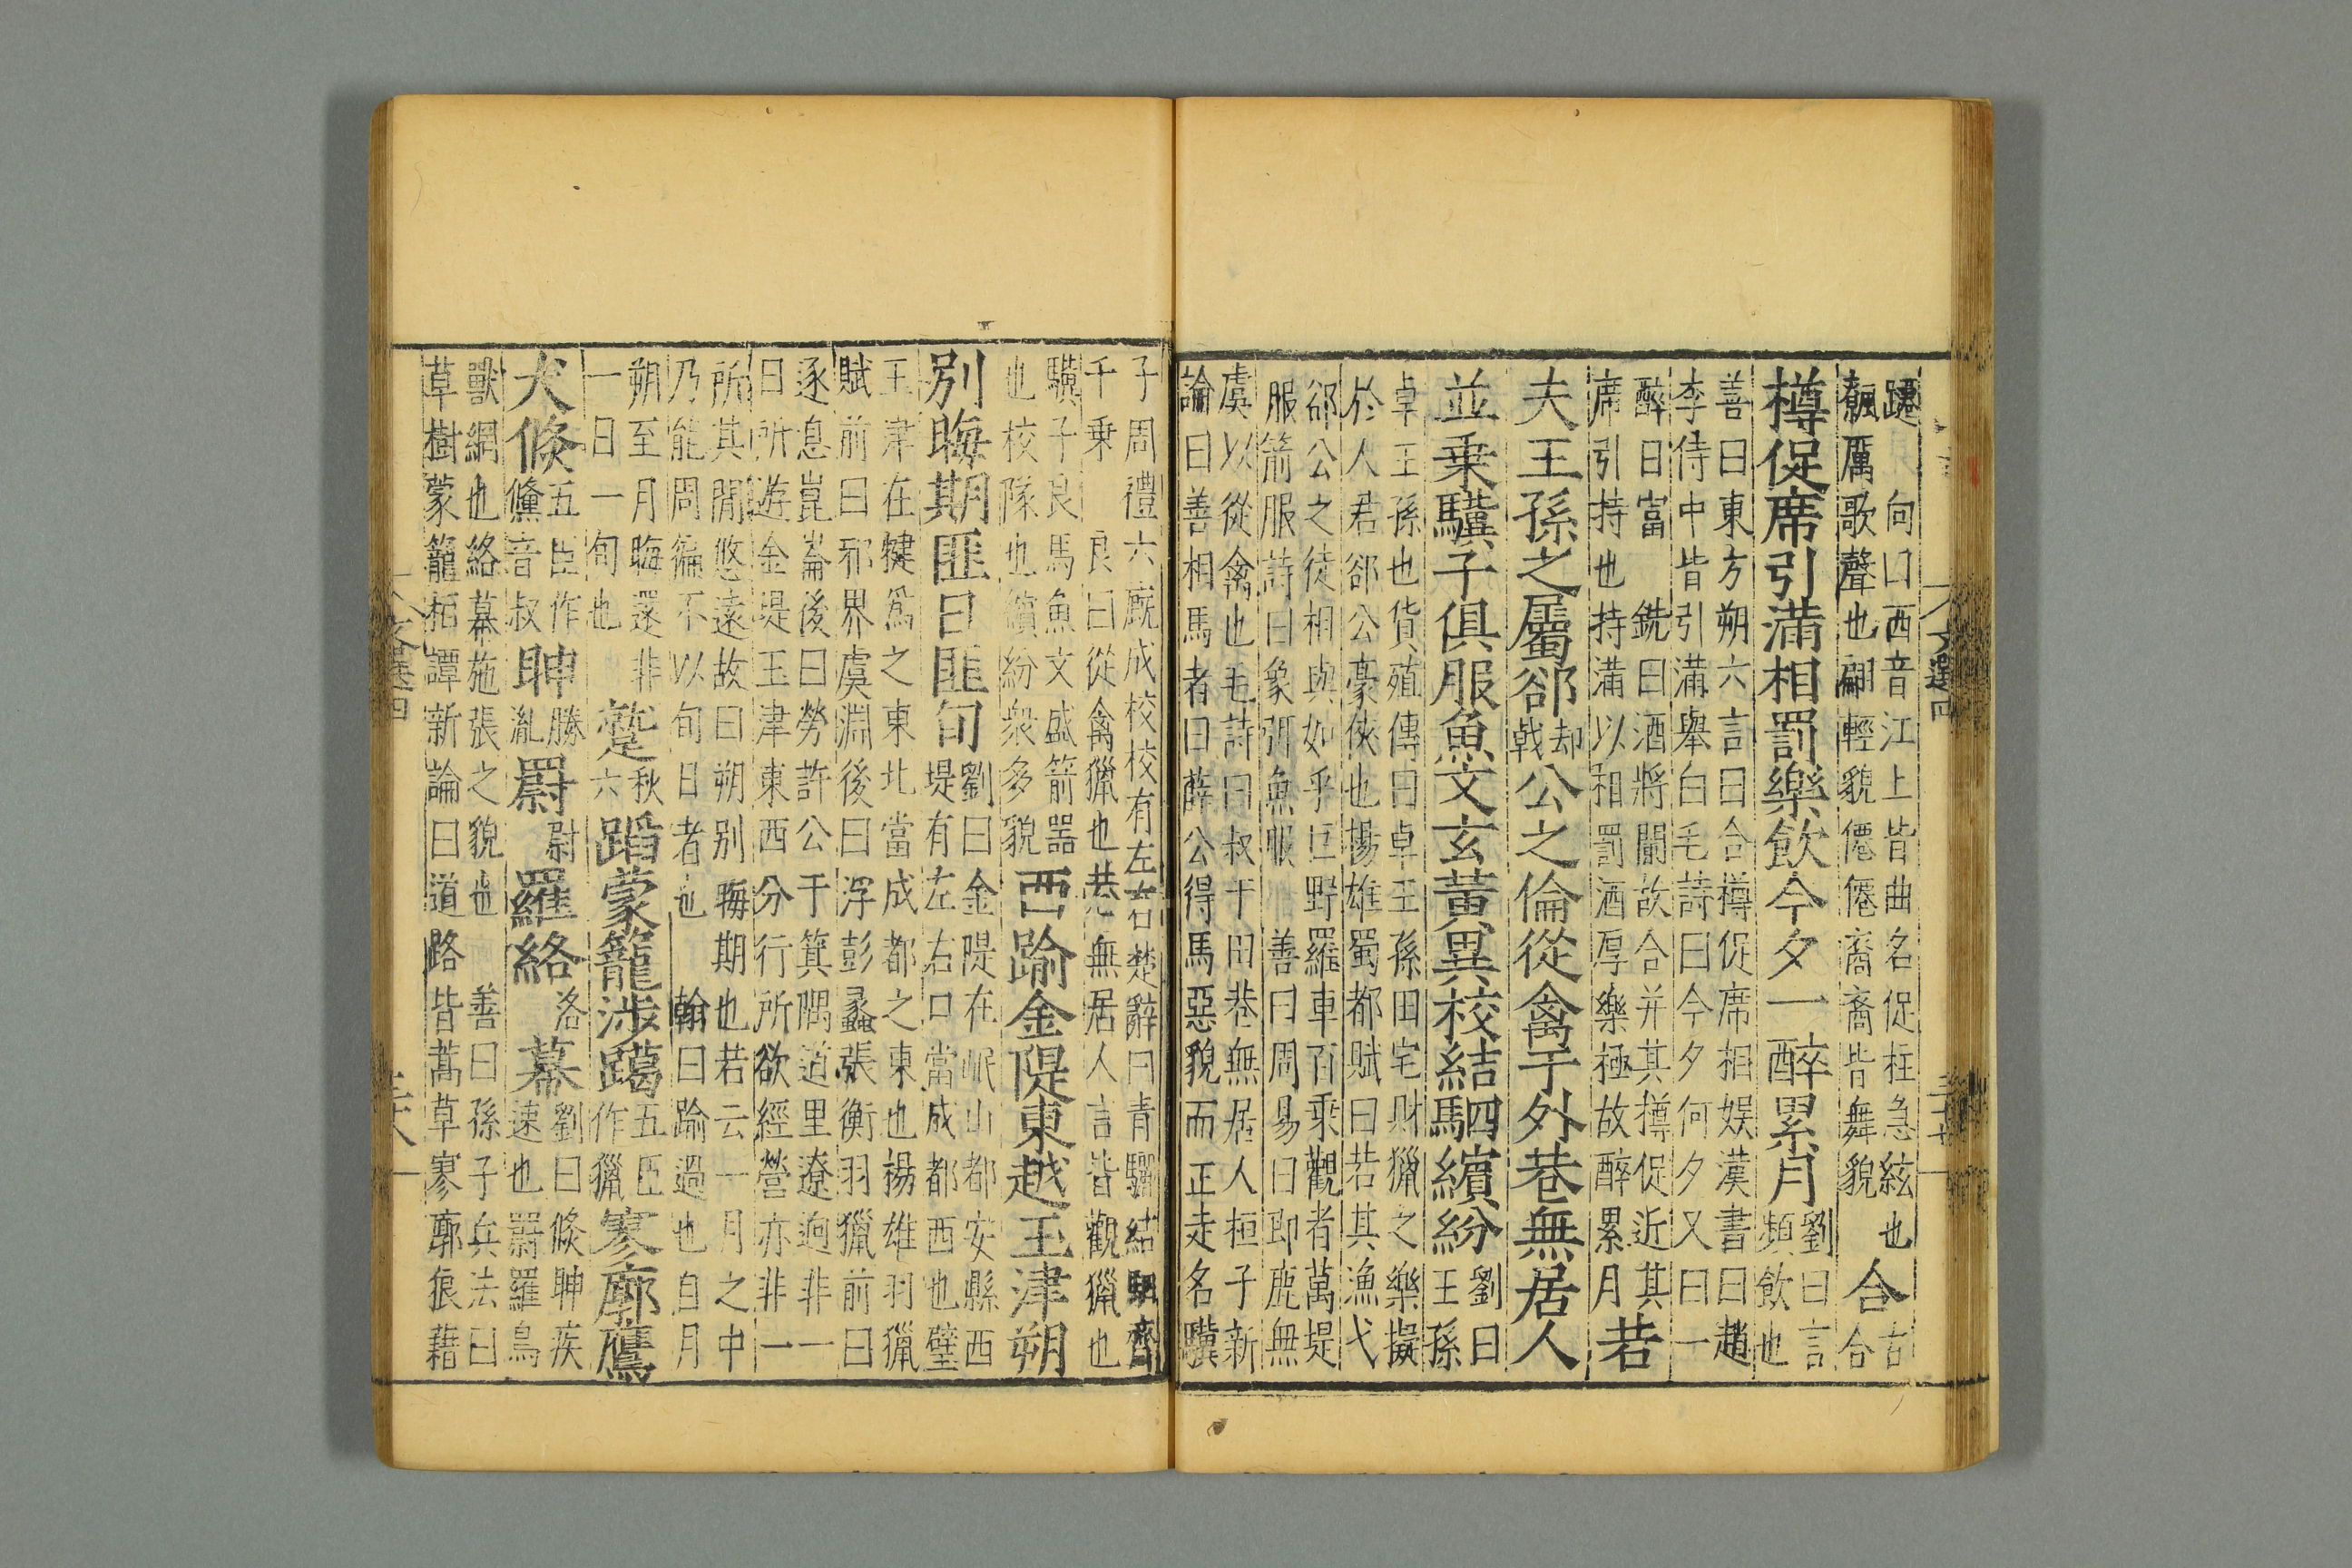 文選四 三十七
躚 向曰西音江上皆曲名促柱急絃也
飆厲歌聲也翩輕貌僊僊裔裔皆舞貌
合古合
樽促席引滿相罰樂飲今夕一醉累月劉曰言頻飲也
善曰東方朔六言曰合樽促席相娛漢書曰趙
李侍中皆引滿舉白毛詩曰今夕何夕又曰一
醉日富 銑曰酒將闌故合并其樽促近其
席引持也持滿以和罰酒厚樂極故醉累月
若
夫王孫之屬郤却戟公之倫從禽于外巷無居人
並乗驥子俱服魚文玄黃異校結駟繽紛劉曰王孫
卓王孫也貨殖傳曰卓王孫田宅財獵之樂擬
於人君郤公豪俠也揚雄蜀都賦曰若其漁弋
郤公之徒相與如乎巨野羅車百乗觀者萬堤
服箭服詩曰象弭魚服 善曰周易曰即鹿無
虞以從禽也毛詩曰叔于田巷無居人桓子新
論曰善相馬者曰薛公得馬惡貌而正走名驥
子周禮六廄成校校有左右楚辭曰青驪結駟齊
千乗 良曰從禽獵也巷無居人言皆觀獵也
驥子良馬魚文盛箭器
也校隊也繽紛衆多貌
西踰金隄東越玉津朔
別晦期匪日匪旬
劉曰金隄在岷山都安縣西
堤有左右口當成都西也璧
玉津在犍爲之東北當成都之東也揚雄羽獵
賦前曰邪界虞淵後曰浮彭蠡張衡羽獵前曰
逐息崑崙後曰勞許公于箕隅道里遼迥非一
日所遊金堤玉津東西分行所欲經營亦非一
所其閒悠遠故曰朔別晦期也若云一月之中
乃能周徧不以旬日者也 翰曰踰過也自月
朔至月晦還非
一日一旬也
蹵秋六蹈蒙籠涉躢五臣作獵寥廓鷹
犬倏五臣作儵音叔眒勝胤罻尉羅絡洛幕劉曰倏眒疾速也罻羅鳥
獸網也絡幕施張之貌也 善曰孫子兵法曰
草樹蒙籠桓譚新論曰道路皆蒿草寥廓狼藉